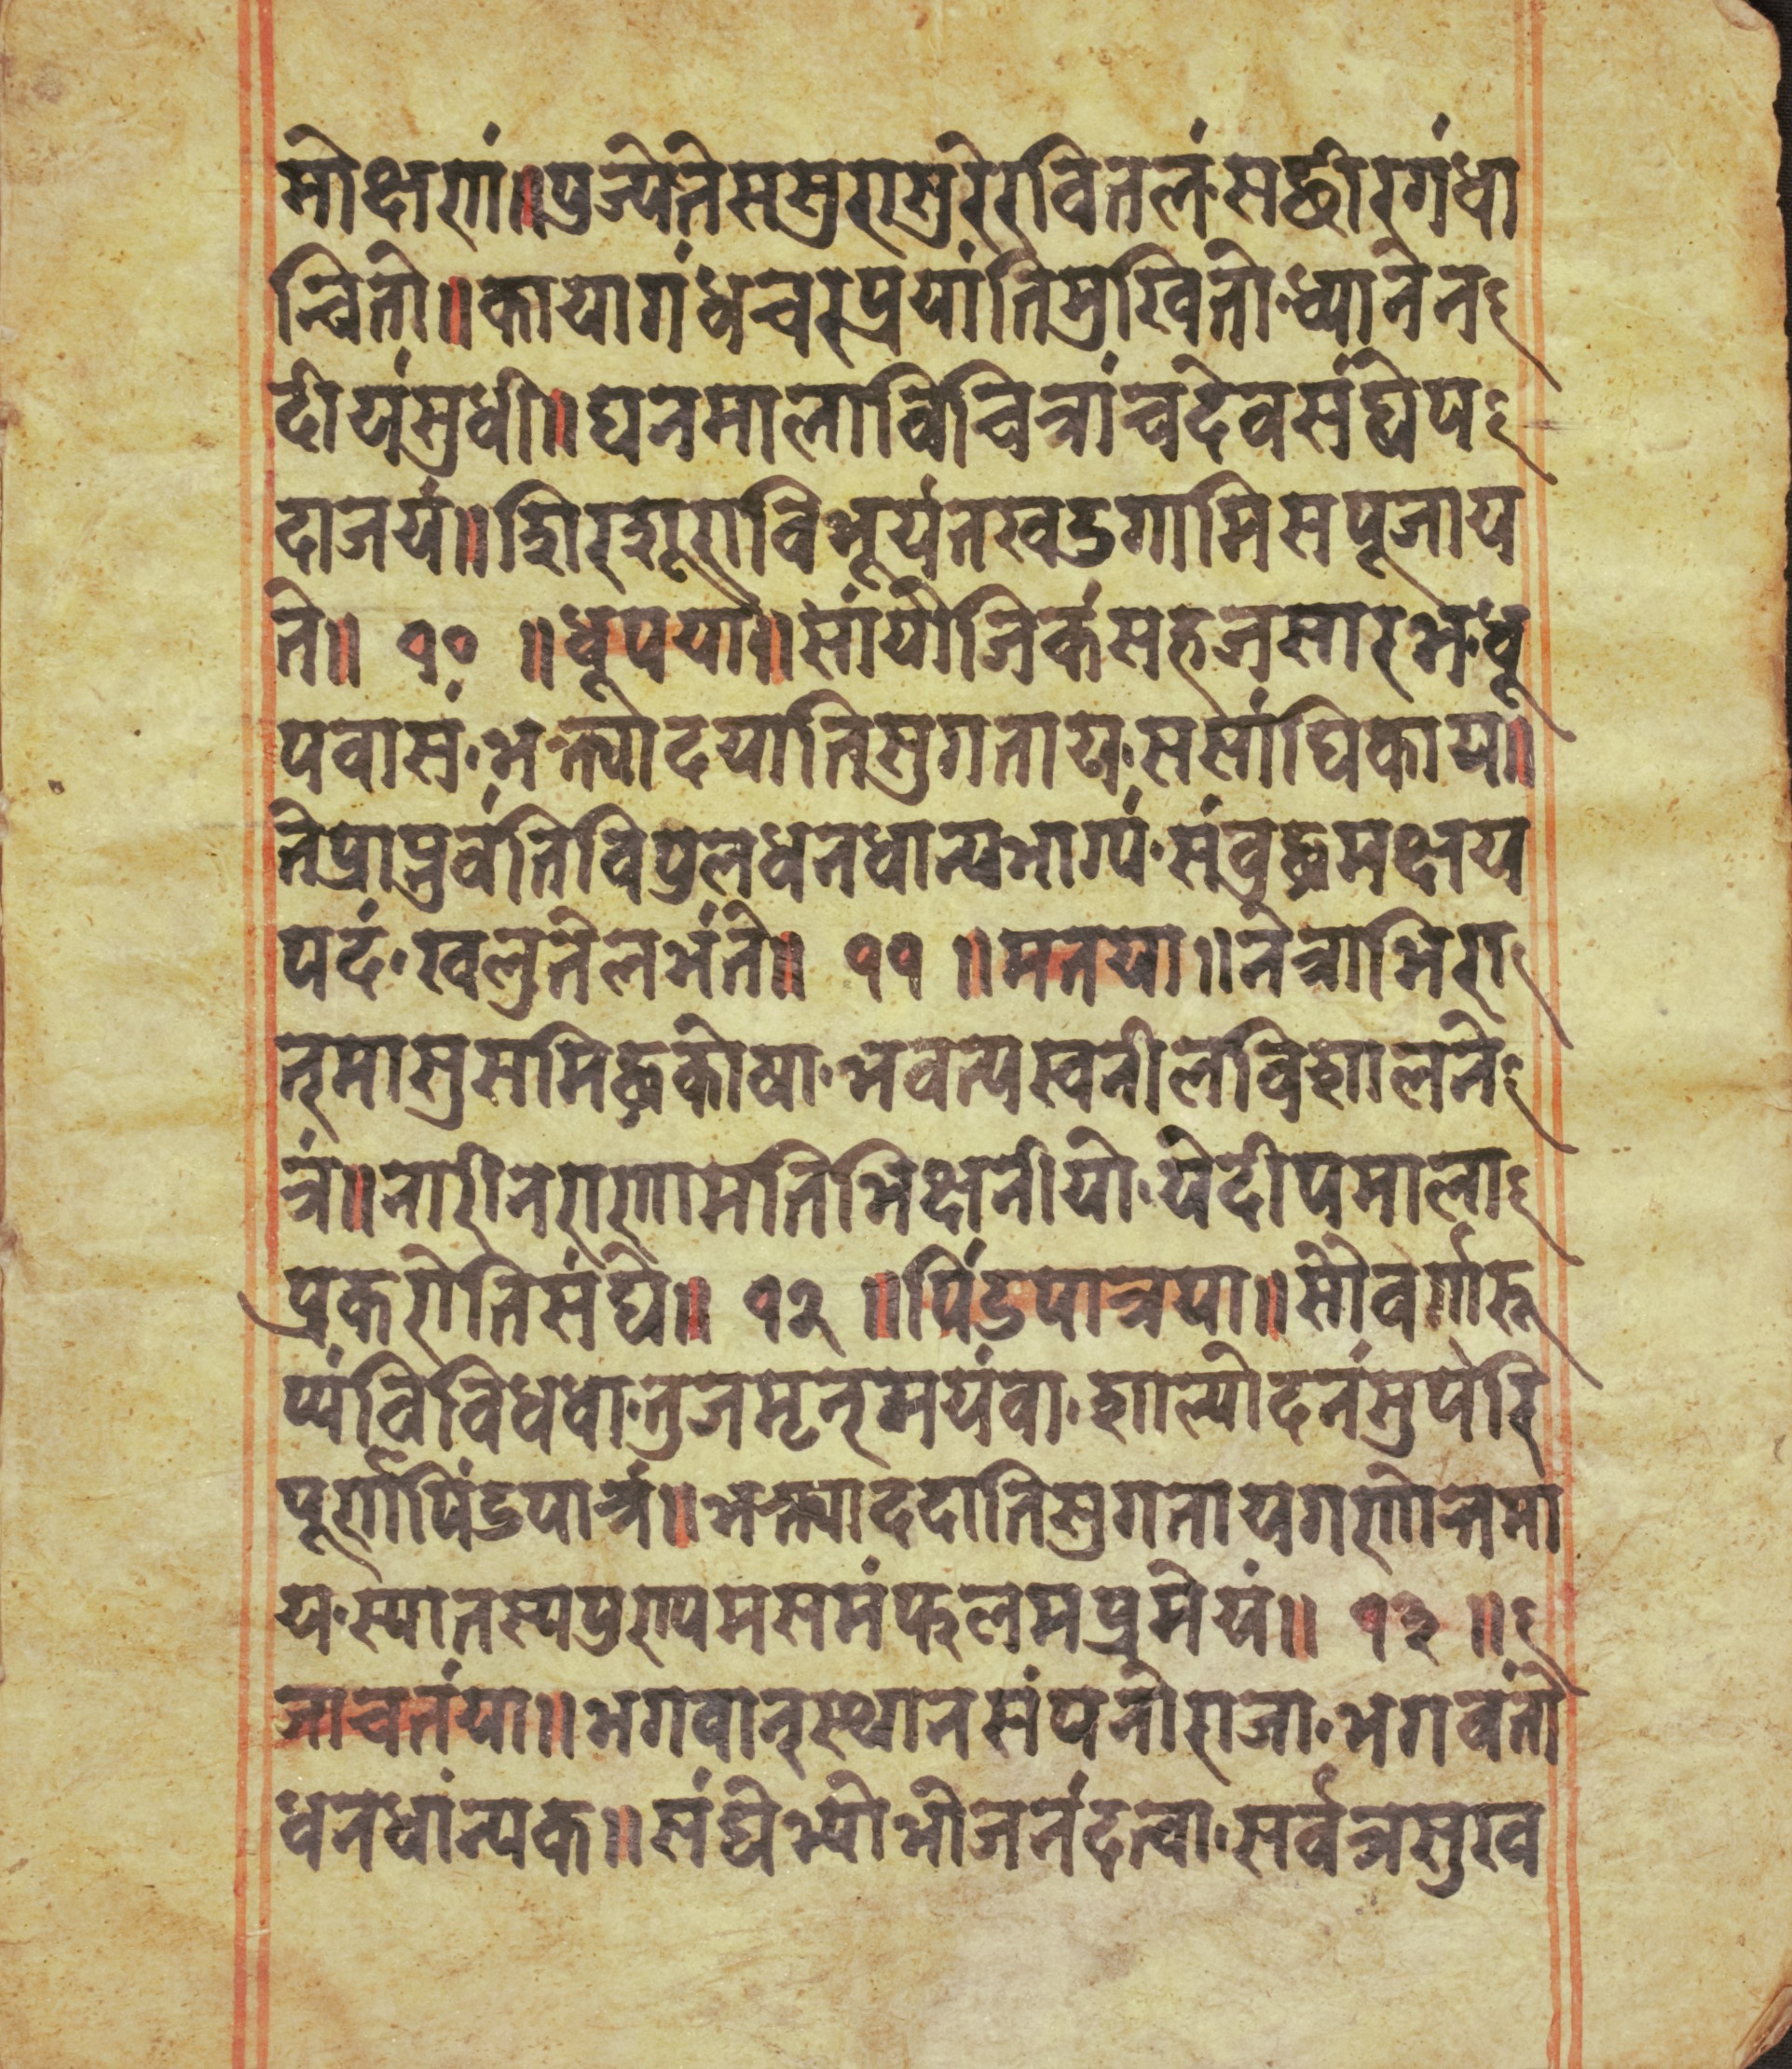 मोक्षणं॥पुज्येतेससुरासुरेरवितलं·सच्छीरगंधा
न्वितो॥कायागंधचरुप्रयांतिसुखितो·ध्यानेन
दीयंसुधी॥घनमालाविचित्रांचदेवसंघेप
दाजयं॥द्विारद्शूराविभूर्यनखड्गामिसपूजाय
ते॥ १० ॥धूपया॥सांर्यौजिकंसहजसारभ·धू
पवासं·भक्त्यादयातिसुगताय·ससांघिकाय॥
तेप्राप्नुवंतिविपुलधनधान्यभाग्यं·संवुद्धमक्षय
पदं·खलुतेलभंते॥ ११ ॥मतया॥नेत्राभिरा
न्मासुसमिद्धकोषा·भवन्यस्वनीलविशालने
त्रं॥नारीनराणामतिभिक्षनीयो·येदीपमाला
प्रकरोतिसंघे॥ १२ ॥पिंडपात्रया॥सौवर्णरू
प्यंविविधधा·तुजमृन्मयंवा·शाल्योदनंसुपरि
पूर्णपिंडपात्रं॥भक्त्याददातिसुगतायगणोत्तमा
य·स्यातस्यपुण्यमसमंफलमप्रमेयं॥ १३ ॥
जाचतंया॥भगवान्स्थानसंपनोराजा·भगवंतो
धनधांन्यक॥संघेभ्योभोजनंदत्वा·सर्वत्रसुख